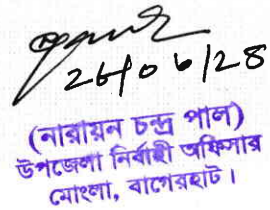 26/06/28
(নারায়ন চন্দ্র পাল)
উপজেলা নির্বাহী অফিসার
মোংলা, বাগেরহাট।